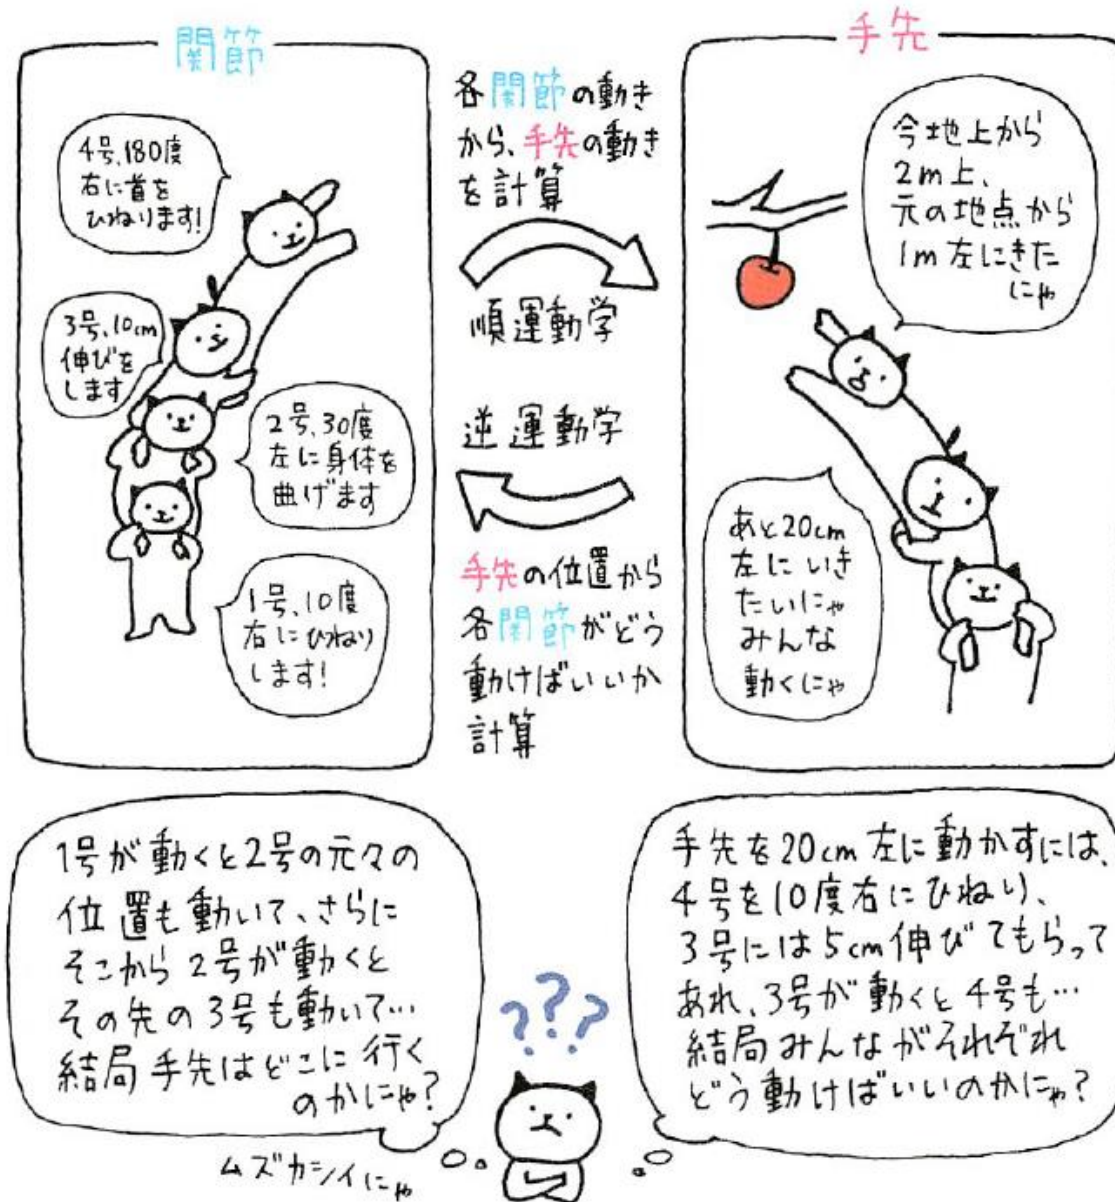 関節
4号、180度
右に首を
ひねります!
3号、10cm
伸びを
します
2号、30度
左に身体を
曲げます
1号、10度
右にひねり
します!
各関節の動き
から、手先の動き
を計算
順運動学
逆運動学
手先の位置から
各関節がどう
動けばいいか
計算
手先
今地上から
2m上、
元の地点から
1m左にきた
にゃ
あと20cm
左にいき
たいにゃ
みんな
動くにゃ
1号が動くと2号の元々の
位置も動いて、さらに
そこから2号が動くと
その先の3号も動いて…
結局手先はどこに行く
のかにゃ?
ムズカシイにゃ
???
手先を20cm左に動かすには、
4号を10度右にひねり、
3号には5cm伸びてもらって
あれ、3号が動くと4号も…
結局みんながそれぞれ
どう動けばいいのかにゃ?